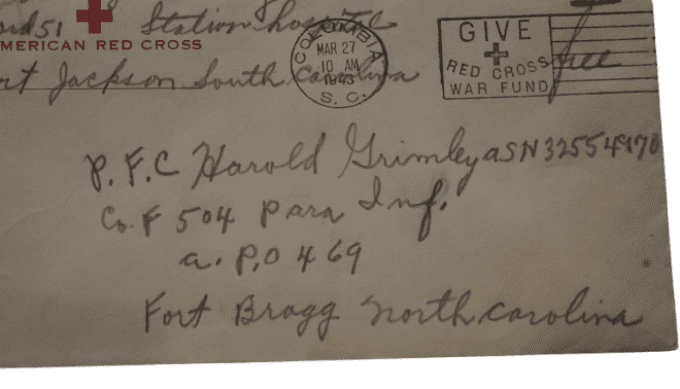 51 Station hospital
AMERICAN RED CROSS
Jackson South Carolina
COLUMBIA
MAR 27
10 AM
1943
S. C.
GIVE
RED CROSS
WAR FUND
free
P.F.C Harold Grimley ASN 32554970
Co. F 504 Para Inf.
a. P.O 469
Fort Bragg North Carolina